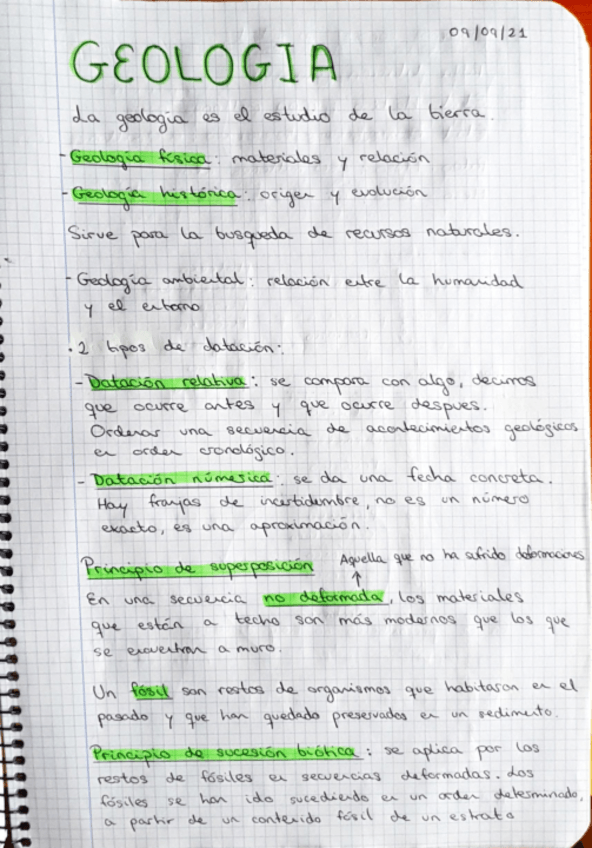 09/09/21
GEOLOGIA
La geologia es el estudio de la tierra.
- Geología física: materiales y relación
- Geología histórica: origen y evolución
Sirve para la busqueda de recursos naturales.
- Geología ambiental: relación entre la humanidad
y el entorno
· 2 tipos de datación:
- Datación relativa: se compara con algo, decimos
que ocurre antes y que ocurre despues.
Ordenar una secuencia de acontecimientos geológicos
en orden cronológico.
- Datación númerica: se da una fecha concreta.
Hay franjas de incertidumbre, no es un número
exacto, es una aproximación.
Principio de superposición Aquella que no ha sufrido deformaciones
↑
En una secuencia no deformada, los materiales
que están a techo son más modernos que los que
se encuentran a muro.
Un fósil son restos de organismos que habitaron en el
pasado y que han quedado preservados en un sedimento.
Principio de sucesión biótica: se aplica por los
restos de fósiles en secuencias deformadas. Los
fósiles se han ido sucediendo en un orden determinado,
a partir de un contenido fósil de un estrato